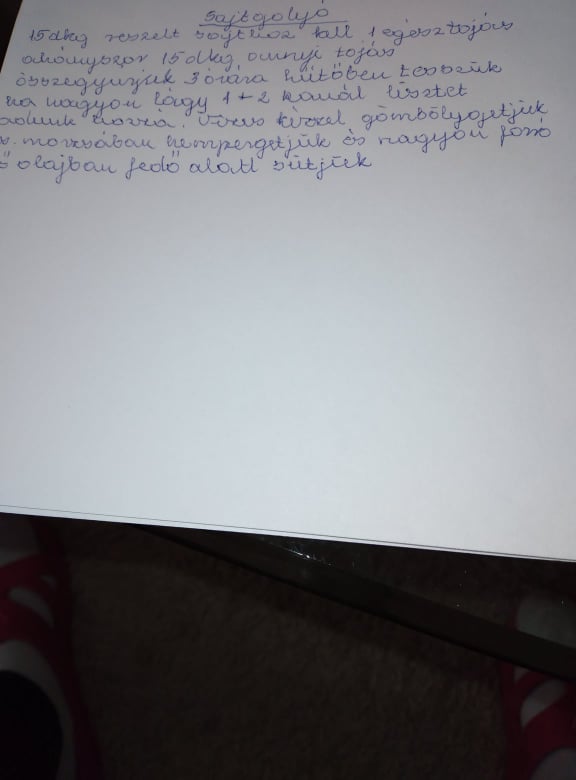 Sajtgolyó
15 dkg reszelt sajthoz kell 1 egész tojás
ahányszor 15 dkg, annyi tojás
összegyúrjuk 3 órára hűtőben tesszük
ha nagyon lágy 1-2 kanál lisztet
adunk hozzá. Vizes kézzel gömbölygetjük
zs. morzsában hempergetjük és nagyon forró
ő olajban fedő alatt sütjük